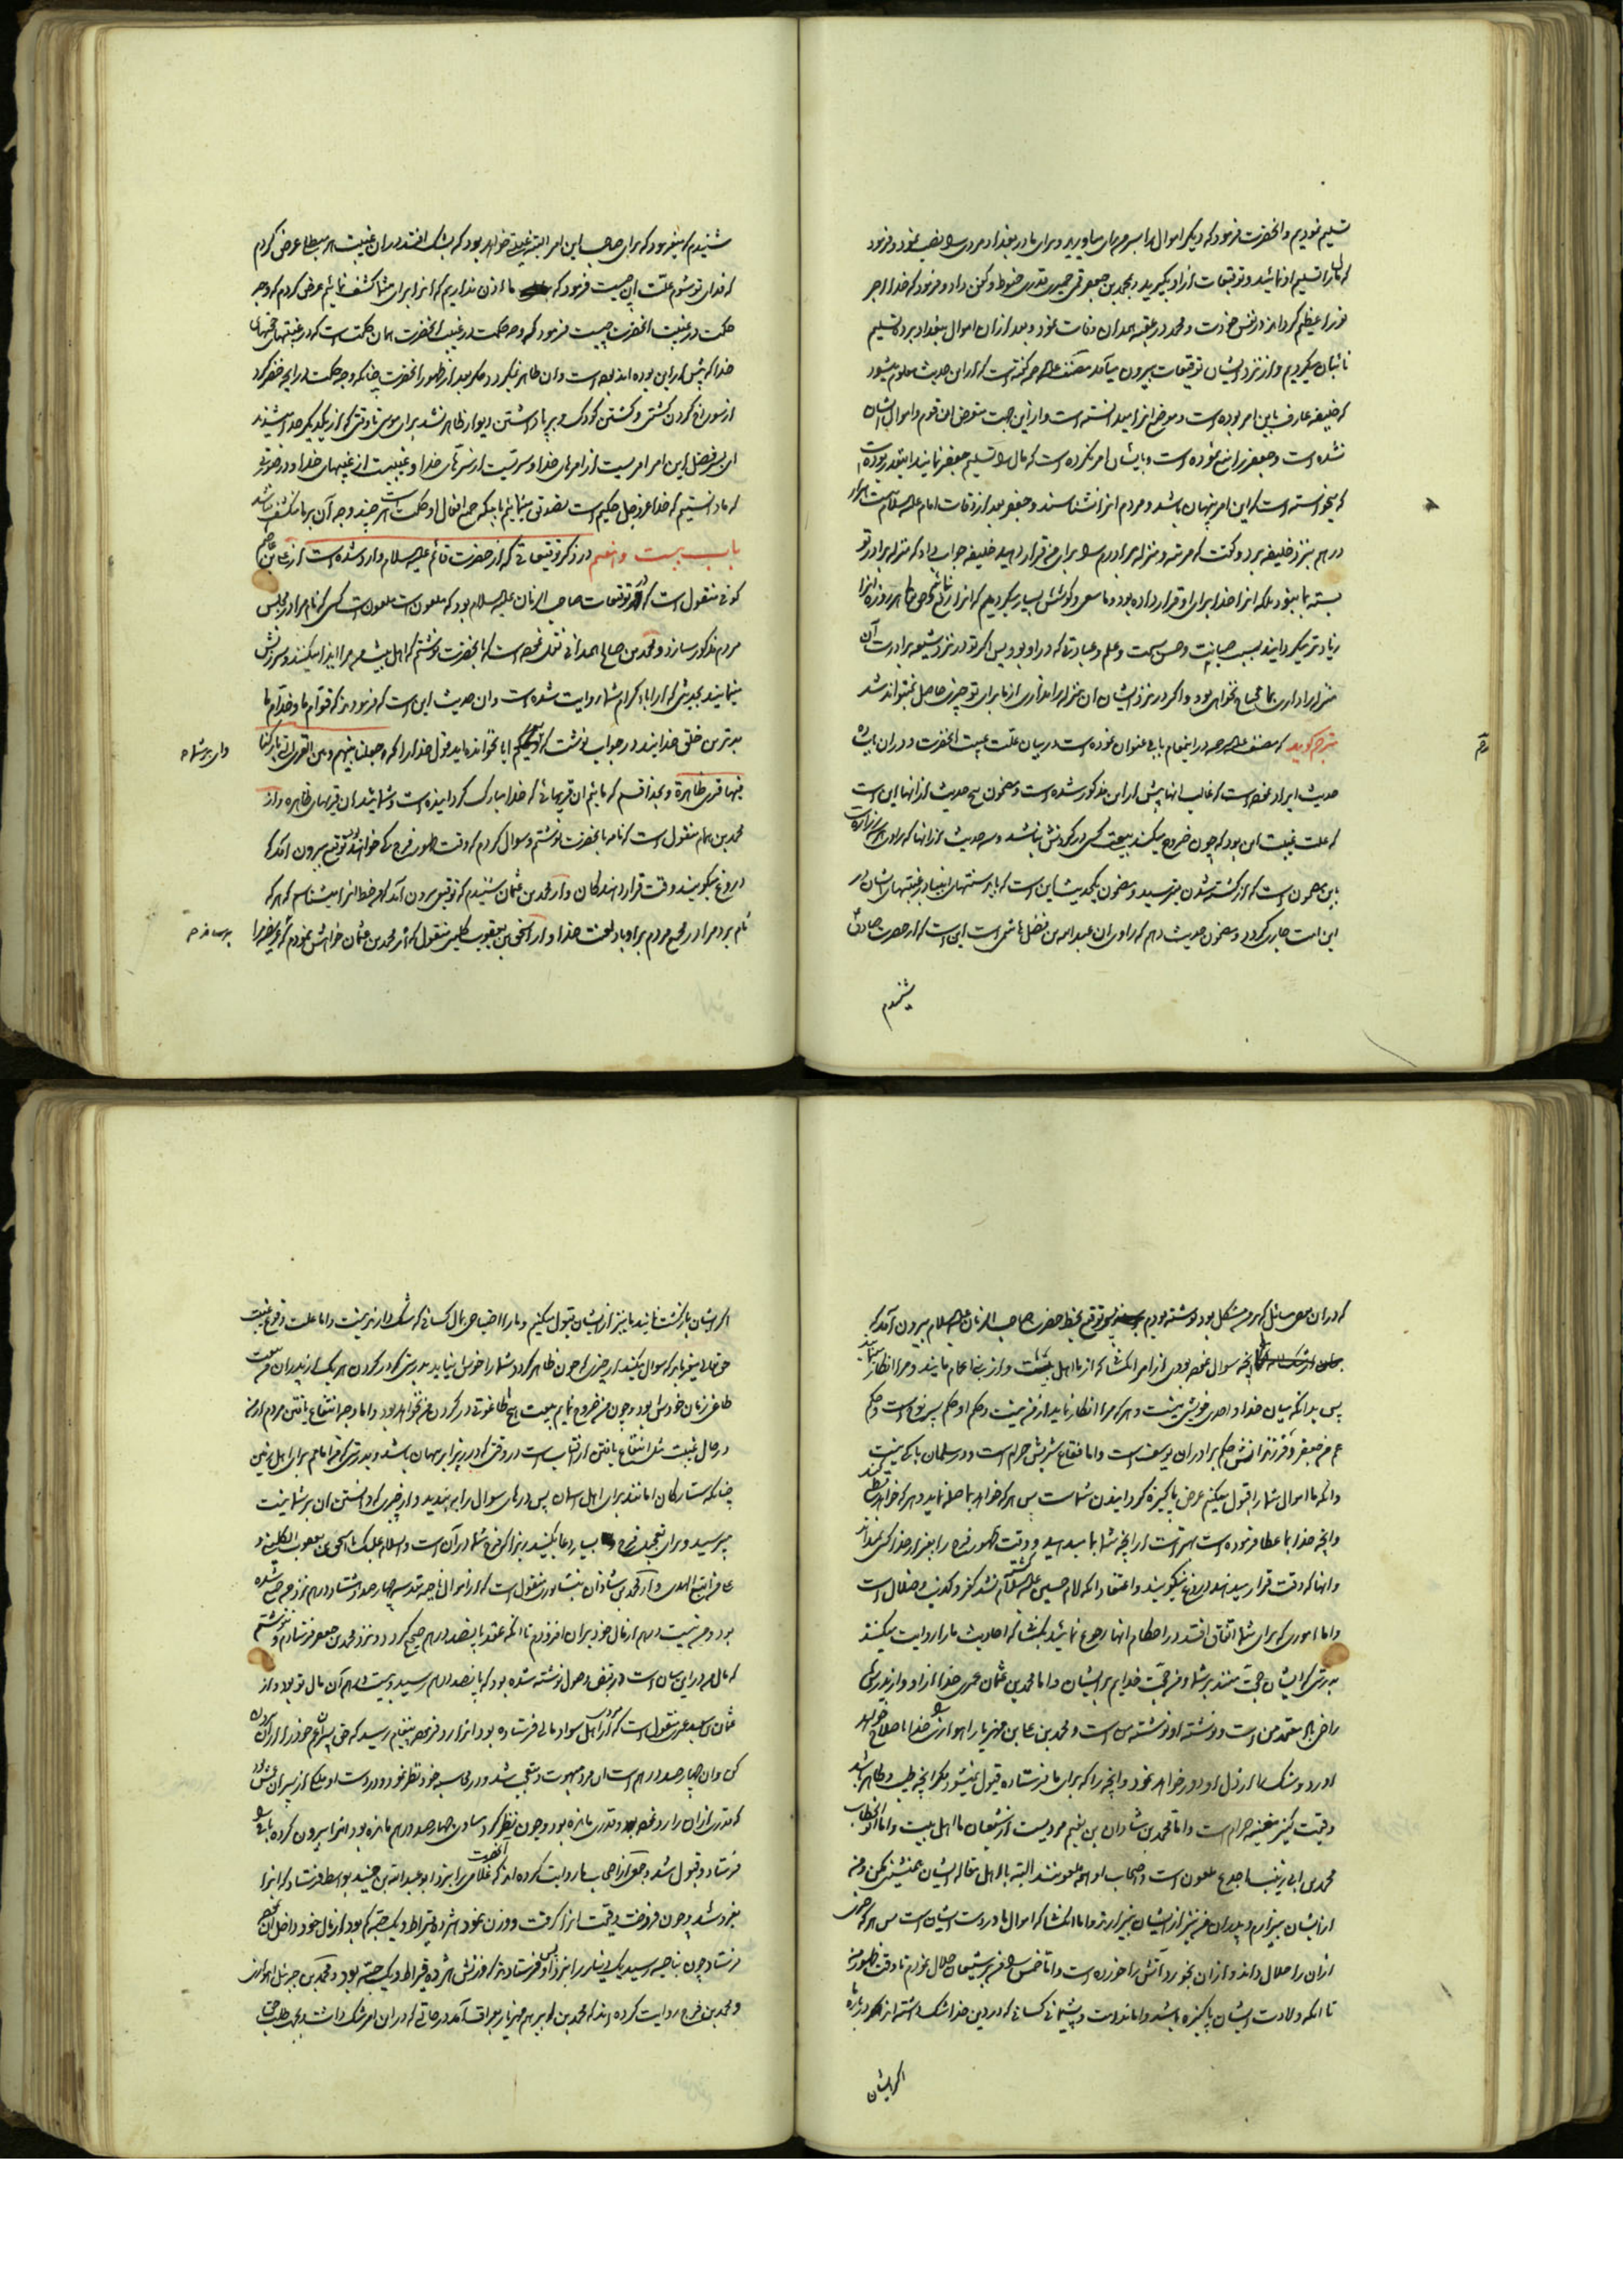 تسلیم نمودیم و انحضرت فرمود که دیگر اموال را بسر من رای میاورید و برای ما در بغداد مردی را نصب نمود و فرمود
که مال را تسلیم او نمائید و توقیعات از او بگیرید و بمحمد بن جعفر قمی حمیری قدری حنوط و کفن داد و فرمود که خدا اجر
تو را عظیم گرداند در نفس خودت و محمد در عقبه همدان وفات نمود و بعد از ان اموال ببغداد برده تسلیم
نائبان میکردیم و از نزد ایشان توقیعات بیرون میآمد مصنف علیه الرحمه گفته است که از این حدیث معلوم میشود
که خلیفه عارف باین امر بوده است و موضع انرا میدانسته است و از این جهت متعرض ان قوم و اموال ایشان
نشده است و جعفر را منع نموده است و بایشان امر نکرده است که مال را تسلیم جعفر نمایند اینقدر بوده است
که میخواسته است که این امر پنهان باشد و مردم انرا نشناسند و جعفر بعد از وفات امام علیه السلام بیست هزار
درهم بنزد خلیفه برد و گفت که مرتبه و منزله برادرم را برای من قرار دهید خلیفه جواب داد که منزله برادر تو
بسته بما نبود بلکه انرا خدا برای او قرار داده بود و ما سعی و کوشش بسیار میکردیم که انرا زایل کنیم و حق تعالی هر روزه انرا
زیادتر میگردانید بسبب صیانت و حسن سمت و علم و عبادتی که در او بود پس اگر تو در نزد شیعه برادرت آن
منزله را داری بما محتاج نخواهی بود و اگر در نزد ایشان ان منزله را نداری از ما برای تو چیزی حاصل نمیتواند شد
مترجم گوید که مصنف علیه الرحمه در اینمقام بابی عنوان نموده است در بیان علت غیبت انحضرت و در ان یازده
حدیث ایراد نموده است که غالب انها پیش از این مذکور شده است و مضمون پنج حدیث از انها این است
که علت غیبت این بود که چون خروج میکند بیعت کسی در گردنش نباشد و سه حدیث از انها که راوی زراره است
باین مضمون است که از کشته شدن میترسید و مضمون یکحدیث این است که باید سنتهای انبیا در غیبتهای ایشان در
این امت جاری گردد و مضمون حدیث دهم که راوی ان عبد الله بن فضل هاشمی است این است که از حضرت صادق
شنیدم
شنیدم که میفرمود که برای صاحب این امر البته غیبتی خواهد بود که بشک افتد در ان غیبت هر مبطلی عرض کردم
که فدای تو شوم علت این چیست فرمود که ما اذن نداریم که انرا برای شما کشف نمائیم عرض کردم که وجه
حکمت در غیبت انحضرت چیست فرمود که وجه حکمت در غیبت انحضرت همان حکمت است که در غیبتهای حجتهای
خدا که پیش از این بوده اند بوده است و ان ظاهر نمیگردد مگر بعد از ظهور انحضرت چنانکه وجه حکمت در انچه خضر کرد
از سوراخ کردن کشتی و کشتن کودک و برپا داشتن دیوار ظاهر نشد برای موسی تا وقتی که از یکدیگر جدا میشدند
ای پسر فضل این امر امریست از امرهای خدا و سریست از سرهای خدا و غیبیست از غیبهای خدا و در صورتی
که ما دانستیم که خدا عز و جل حکیم است تصدیق مینمائیم باینکه جمیع افعال او حکمت است هر چند وجه آن بر ما منکشف نباشد
باب بیست و نهم در ذکر توقیعاتی که از حضرت قائم علیه السلام وارد شده است از علی بن عاصم
کوفی منقول است که در توقیعات صاحب الزمان علیه السلام بود که ملعون است ملعون است کسی که نام مرا در مجلس
مردم مذکور سازد و محمد بن صالح همدانی نقل نموده است که بانحضرت نوشتم که اهل بیت من مرا ایذا میکنند و سرزنش
مینمایند بحدیثی که از اباء کرام شما روایت شده است و ان حدیث این است که فرموده اند که قوّام ما و خدّام ما
بدترین خلق خدایند در جواب نوشت که ویحکم ایا نخوانده اید قول خدا را که و جعلنا بینهم و بین القری التی بارکنا
فیها قری ظاهرة و بخدا قسم که مائیم ان قریهائی که خدا مبارک گردانیده است و شمائید ان قریهای ظاهره و از
محمد بن همام منقول است که نامه بانحضرت نوشتم و سوال کردم که وقت ظهور فرج کی خواهد بود توقیع بیرون آمد که
دروغ میگویند وقت قرار دهندگان و از محمد بن عثمان شنیدم که توقیعی بیرون آمد که خط انرا میشناسم که هر که
نام برد مرا در مجمع مردم بر او باد لعنت خدا و از اسحق بن یعقوب کلینی منقول که از محمد بن عثمان خواهش نمودم که عریضه مرا
که در ان بعض مسائل که بر من مشکل بود نوشته بودم برساند پس توقیع بخط حضرت صاحب الزمان علیه السلام بیرون آمد که
انچه سوال نموده بودی از امر انکسانی که از ما اهل بیت و از بنی اعمام مایند و مرا انکار مینمایند
پس بدانکه میان خدا و احدی خویشی نیست و هر که مرا انکار نماید از من نیست و حکم او حکم پسر نوح است و حکم
عم من جعفر و فرزندانش حکم برادران یوسف است و اما فقاع شربش حرام است و در سلمان باکی نیست
و انکه ما اموال شما را قبول میکنیم غرض پاکیزه گردانیدن شماست پس هر که خواهد بما صله نماید و هر که خواهد قطع کند
و انچه خدا بما عطا فرموده است بهتر است از انچه شما بما میدهید و وقت ظهور فرج را بغیر از خدا کسی نمیداند
و انها که وقت قرار میدهند دروغ میگویند و اعتقاد انکه امام حسین علیه السلام کشته نشد کفر و تکذیب و ضلال است
و اما اموری که برای شما اتفاق افتد در احکام انها رجوع نمائید بکسانی که احادیث ما را روایت میکنند
بدرستی که ایشان حجت منند بر شما و من حجت خدایم بر ایشان و اما محمد بن عثمان عمری خدا از او و از پدرش
راضی باد معتمد من است و نوشته او نوشته من است و محمد بن علی بن مهزیار اهوازی را خدا اصلاح خواهد
و شک را از دل او دور خواهد نمود و انچه را که برای ما فرستاده قبول نمیشود مگر انچه طیب و طاهر باشد
و قیمت کنیز مغنیه حرام است و اما محمد بن شاذان بن نعیم مردیست از شیعیان ما اهل بیت و اما ابو الخطاب
محمد بن ابی زینب اجدع ملعون است و اصحاب او همه ملعونند البته با اهل مقاله ایشان همنشینی مکن و من
از ایشان بیزارم و پدران من نیز از ایشان بیزارند و اما انکسانی که اموال ما در دست ایشان است پس هر که چیزی
از ان را حلال داند و از ان بخورد آتش را خورده است و اما خمس را من بر شیعیان حلال نمودم تا وقت ظهور من
تا انکه ولادت ایشان پاکیزه باشد و اما ندامت و پشیمانی کسانی که در دین خدا شک داشته اند در باره
اگر ایشان
اگر ایشان بازگشت نمایند ما نیز از ایشان قبول میکنیم و ما را احتیاجی بمال کسانی که شک دارند نیست و اما علت وقوع غیبت
حق تعالی میفرماید که سوال مکنید از چیزی که چون ظاهر گردد شما را خوش نیاید بدرستی که در گردن هر یک از پدران من بیعت
طاغی زمان خودش بود و چون من خروج نمایم بیعت هیچ طاغوتی در گردن من نخواهد بود و اما وجه انتفاع یافتن مردم از من
در حال غیبت مثل انتفاع یافتن از افتاب است در وقتی که در زیر ابر پنهان باشد و بدرستی که من امانم برای اهل زمین
چنانکه ستارگان امانند برای اهل اسمان پس درهای سوال را ببندید و از چیزی که دانستن ان بر شما نیست
مپرسید و برای تعجیل فرج بسیار دعا بکنید زیرا که فرج شما در آن است و السلام علیک یا اسحق بن یعقوب الکلینی و
علی من اتبع الهدی و از محمد بن شاذان نیشابوری منقول است که از اموال ناحیه مقدسه چهار صد و هشتاد درهم نزد من جمع شده
بود و من بیست درهم از مال خود بر ان افزودم تا انکه عقد پانصد درهم صحیح گردد و نزد محمد بن جعفر فرستادم و ننوشتم
که مال من در این میان است و در قبض وصول نوشته شده بود که پانصد درهم رسید و بیست درهم آن مال تو بود و از
عثمان بن سعید عمری منقول است که مردی از اهل سواد مالی فرستاده بود انرا رد فرمود پیغام رسید که حق پسران عم خود را از ان بیرون
کن و ان چهار صد درهم است ان مرد مبهوت و متعجب شد و در محاسبه خود نظر نمود و در دست او ملکی از پسران عمش بود
که قدری از ان را رد نموده بود و قدری مانده بود و چون نظر کرد مساوی چهار صد درهم مانده بود انرا بیرون کرده باقی را
فرستاد و قبول شد و جمعی از اصحاب ما روایت کرده اند که انحضرت غلامی را بنزد ابو عبد الله بن جنید بواسط فرستاد که انرا
بفروشد و چون فروخت و قیمت انرا گرفت و وزن نمود هژده قیراط و یک حبه کم بود از مال خود داخل ان نموده
فرستاد چون بناحیه رسید یک دینار را بنزد او پس فرستادند که وزنش هژده قیراط و یک حبه بود و محمد بن جبرئیل اهوازی
و محمد بن فرج روایت کرده اند که محمد بن ابراهیم مهزیار بعراق آمد در حالتی که در ان امر شک داشت